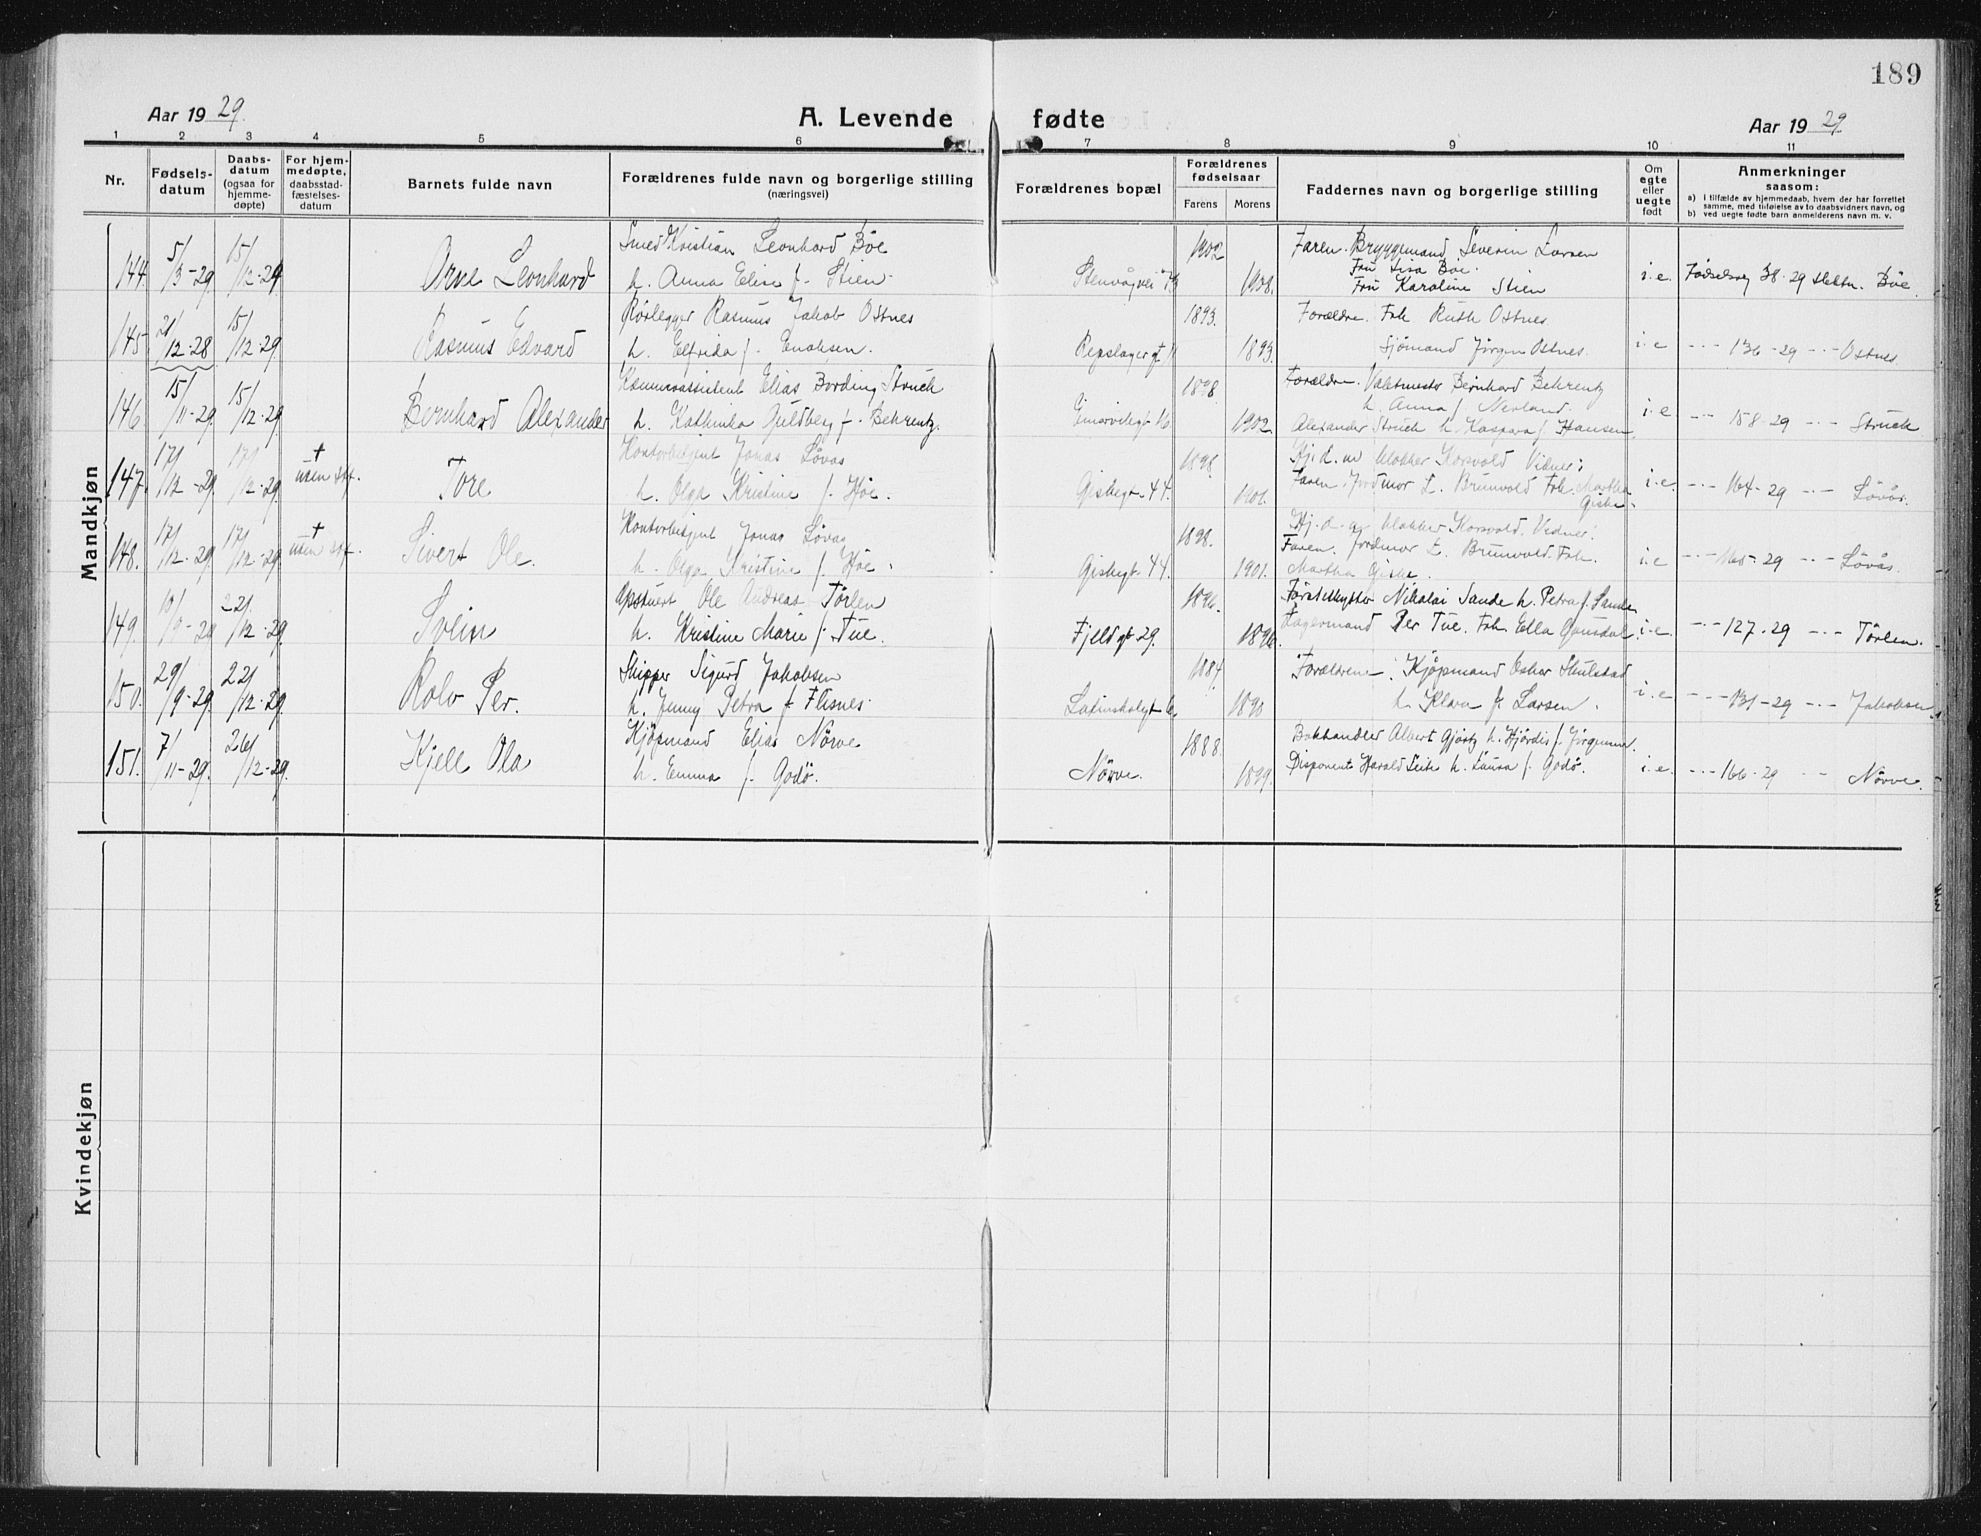 189
Aar 1929.
A. Levende fødte
Aar 1929
1 2 3 4 5 6 7 8 9 10 11
Nr.
Fødselsdatum
Daabsdatum (ogsaa for hjemmedøpte)
For hjemmedøpte, daabsstadfæstelsesdatum
Barnets fulde navn
Forældrenes fulde navn og borgerlige stilling (næringsvei)
Forældrenes bopæl
Forældrenes fødselsaar
Farens Morens
Faddernes navn og borgerlige stilling
Om egte eller uegte født
Anmerkninger saasom:
a) I tilfælde av hjemmedaab, hvem der har forrettet samme, med tilføielse av to daabsvidners navn, og
b) ved uegte fødte barn anmelderens navn m. v.
Mandkjøn
144. 5/3-29. 15/12-29 Arve Leonhard
Smed Kristian Leonhard Böe
h. Anna Elise f. Stien
Stenvågvei 1902 1908.
Faren. Bryggemand Severin Larsen
Fru Lisa Böe.
Fru Karoline Stien
i.e. Fødselsreg 38-29 Böe.
145 21/12-28 15/12-29 Rasmus Edvard
Rörlegger Rasmus Jakob Ostnes
h. Elfrida f. Enoksen.
Repslagergt 11 1893. 1893.
Forældre. Frk Ruth Ostnes
Sjömand Jörgen Ostnes.
i.e --- 136-29 --- Ostnes
146. 15/11-29. 15/12-29. Bernhard Alexander
Kæmnerassistent Elias Bording Struck
h. Kathinka Guldberg f. Behrentz.
16 1898. 1902.
Forældre. Bernhard Behrentz
h. Anna f. Nerland.
Alexander Struck h. Kaspara f. Hansen.
i.e -- 158-29 --- Struck
147. 17/12-29. 17/12-29. + uten stf. Tore
Kontorbetjent Jonas Løvås
h. Olga Kristine f. Höe.
Giskegt. 44. 1898. 1901.
Hj.d. av klokker Korsvold Vidner:
Faren. Jordmor L. Brunvold Frk. Martha Giske.
i.e. --- 164-29 --- Lövås.
148. 17/12-29. 17/12-29. + uten stf. Sivert Ole.
Kontorbetjent Jonas Løvås
h. Olga Kristine f. Höe.
Giskegt. 44. 1898. 1901.
Hj.d. av klokker Korsvold. Vidner:
Faren. Jordmor L. Brunvold. Frk.
Martha Giske.
i.e --- 165-29 --- Lövås.
149. 10/9-29 22/12-29. Svein
Opstuert Ole Andreas Törlen
h. Kristine Marie f. Tue.
Fjeldgt 29. 1896. 1896.
Nikolai Sande h. Petra f. Sande
Lagermand Per Tue. Frk. Ella Gausdal
i.e. --- 127-29 --- Törlen.
150. 29/9-29. 22/12-29. Rolv Per.
Skipper Sigurd Jakobsen
h. Jenny Petra f. Flisnes.
Latinskolegt 6. 1884. 1890
Forældrene. Kjöpmand Oskar Skulstad
h. Klara f. Larsen.
i.e --- 131-29 --- Jakobsen
151. 7/11-29. 26/12-29. Kjell Ola
Kjöpmand Elias Nörve
h. Emma f. Godö.
Nörve. 1888. 1899.
Bokhandler Albert Gjörtz h. Hjördis f. Jörgensen.
Disponent Harald Leite h. Laura f. Godö.
i.e. --- 166-29 -- Nörve.
Kvindekjøn